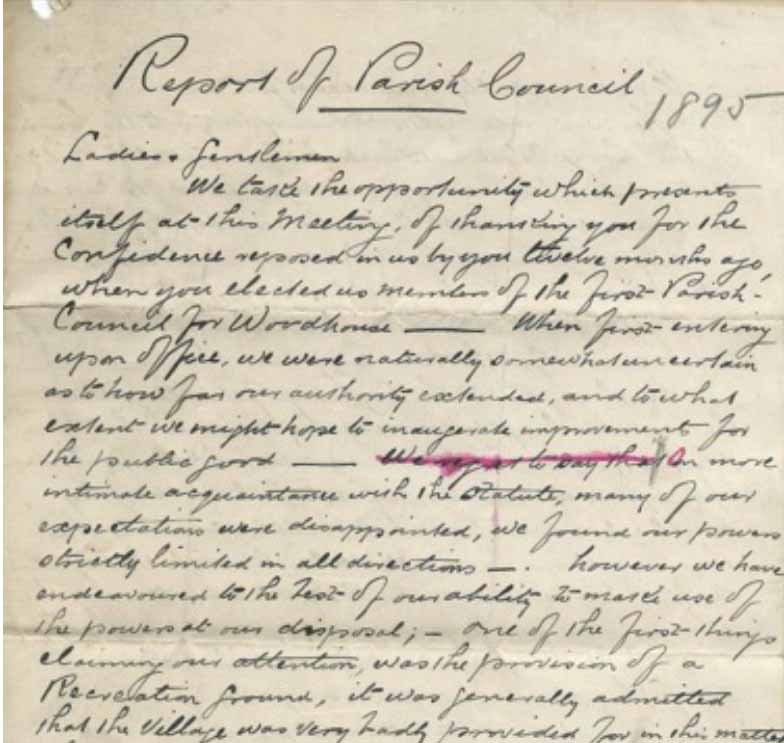 Report of Parish Council
1895
Ladies & Gentlemen
We take the opportunity which presents
itself at this Meeting, of thanking you for the
Confidence reposed in us by you twelve months ago,
when you elected us members of the first Parish-
Council for Woodhouse — When first entering
upon office, we were naturally somewhat uncertain
as to how far our authority extended, and to what
extent we might hope to inaugerate improvement for
the public good — We regret to say that On more
intimate acquaintance with the Statute, many of our
expectations were disappointed, we found our powers
strictly limited in all directions —. however we have
endeavoured to the best of our ability to make use of
the powers at our disposal; — one of the first things
claiming our attention, was the provision of a
Recreation Ground, it was generally admitted
that the Village was very badly provided for in this matter